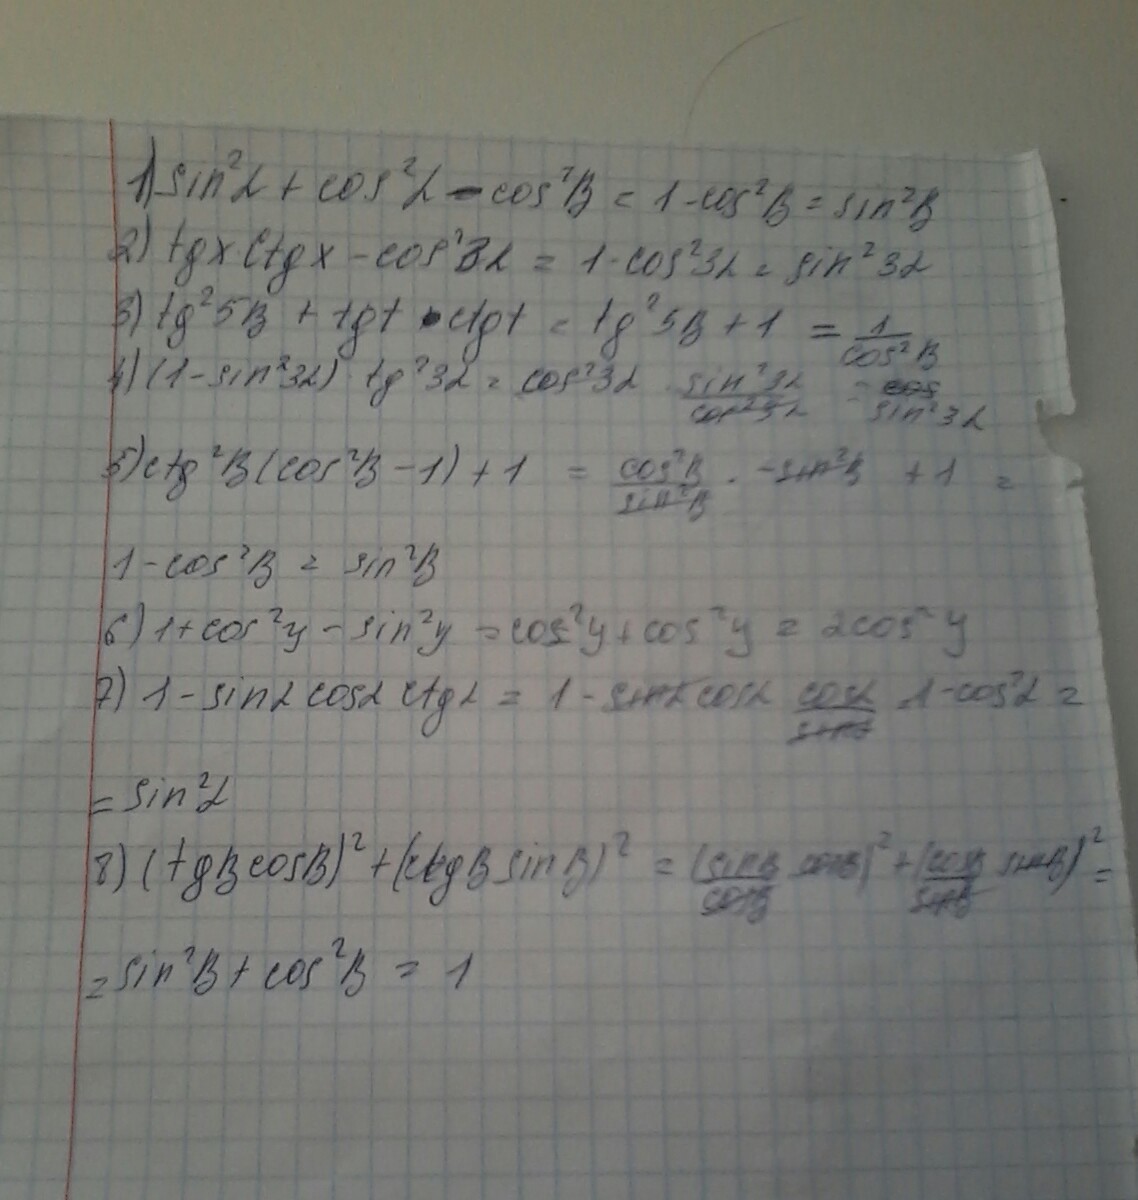 1) sin²α + cos²α - cos²β = 1-cos²β = sin²β
2) tgx ctgx - cos²3α = 1-cos²3α = sin²3α
3) tg²5β + tgt • ctgt = tg²5β + 1 = 1/cos²β
4) (1-sin²3α) tg²3α = cos²3α sin²3α/cos²3α = sin²3α
5) ctg²β(cos²β - 1) + 1 = cos²β/sin²β · -sin²β + 1 =
1-cos²β = sin²β
6) 1+cos²y - sin²y = cos²y + cos²y = 2cos²y
7) 1 - sinα cosα ctgα = 1 - sinα cosα cosα/sinα 1-cos²α =
= sin²α
8) (tgβ cosβ)² + (ctgβ sinβ)² = (sinβ/cosβ cosβ)² + (cosβ/sinβ sinβ)² =
= sin²β + cos²β = 1